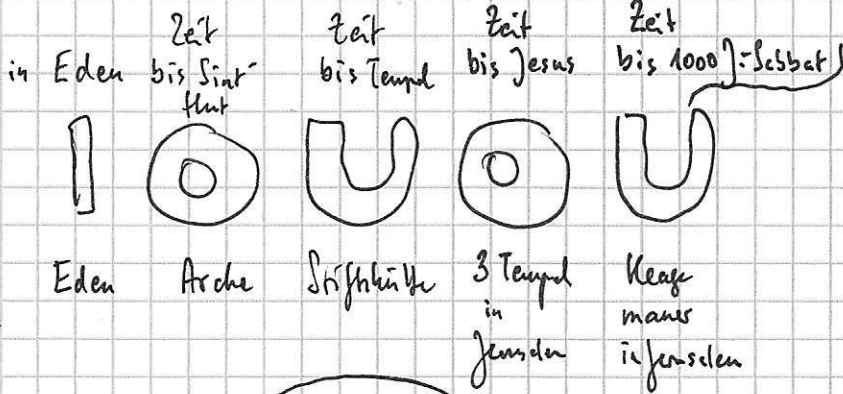 in Eden
Zeit
bis Sint-
flut
Zeit
bis Tempel
Zeit
bis Jesus
Zeit
bis 1000 J-Sabbat
I O U O U
Eden
Arche
Stiftshütte
3 Tempel
in
Jerusalem
Klage
mauer
in Jerusalem